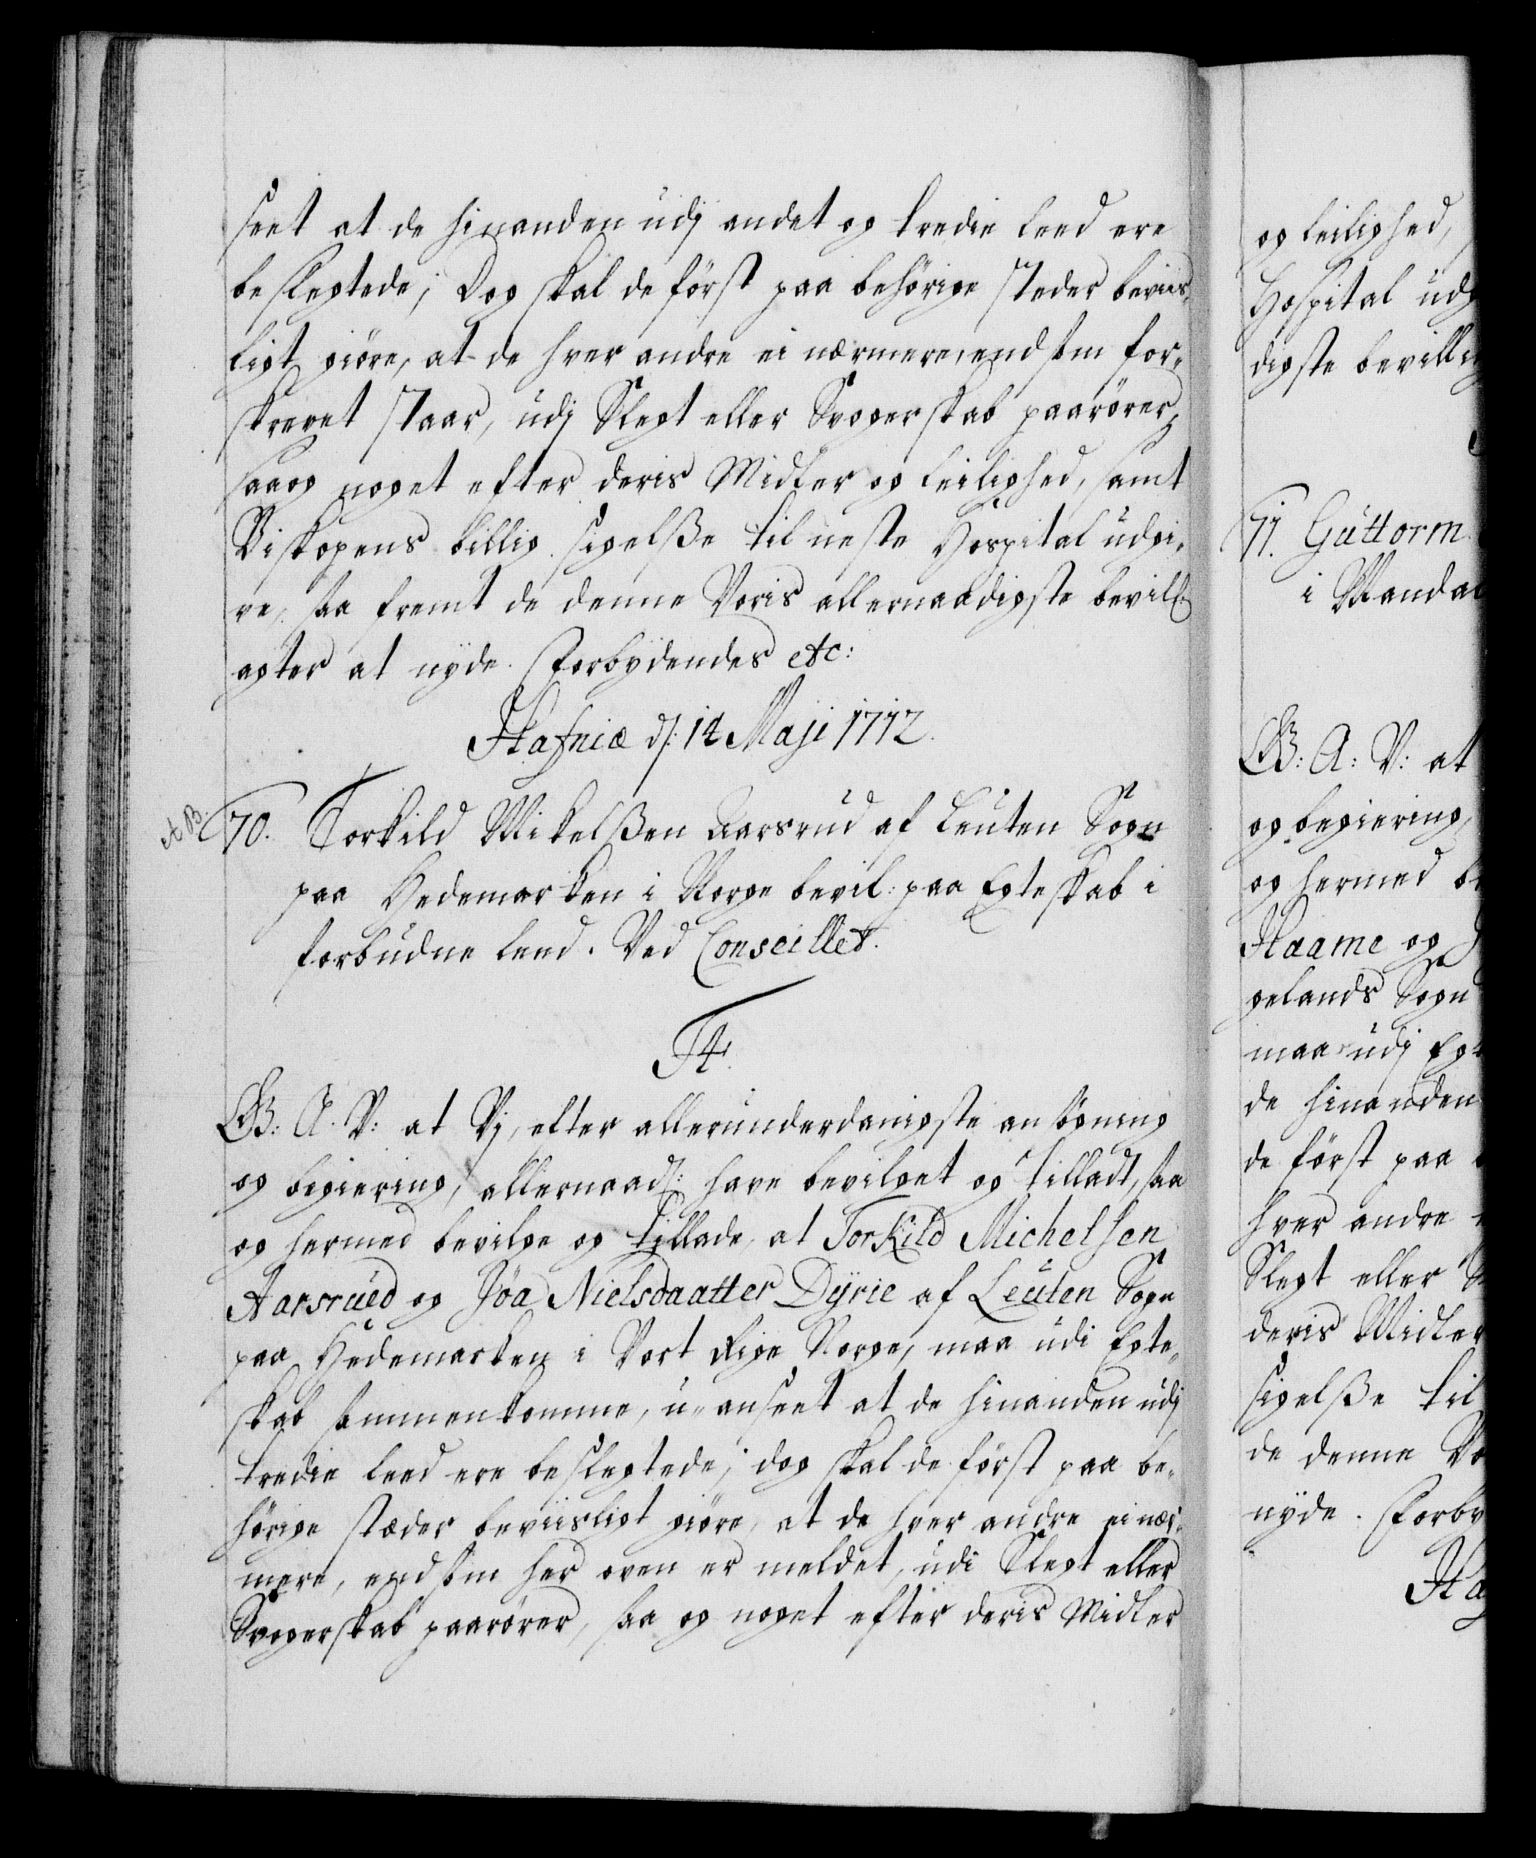 seet at de hinanden udj andet og tredie leed ere
beslegtede; Dog skal de först paa behörige steder beviis-
ligt giöre, at de hver andre ei nærmere, end som for-
skrevet staar, udj Slegt eller Svogerskab paarörer,
saaog noget efter deris Midler og Leilighed, samt
Biskopens billig sigelße til neste Hospital udgi-
ve, saa fremt de denne Voris allernaadigste bevilg:
agter at nyde. Forbydendes etc:
Hafniæ d: 14 Maji 1712.
A B.
70. Torkild Mikelßen Aarsrud af Leuten Sogn
paa Hedemarken i Norge bevil: paa Egteskab i
forbudne leed. Ved Conseillet.
F4.
G: A: V: at Vj, efter allerunderdanigste ansögning
og begiering, allernaad: have bevilget og tilladt, saa
og hermed bevilge og tillade, at Torkild Michelsen
Aarsrued og Jöa Nielsdaatter Dyrie af Leuten Sogn
paa Hedemarken i Vort Rige Norge, maa udi Egte-
skab sammenkomme, u-anseet at de hinanden udj
tredie leed ere beslegtede; dog skal de först paa be-
hörige stæder beviisligt giöre, at de hver andre ei nær-
mere, end som her oven er meldet, udi Slegt eller
Svogerskab paarörer, saa og noget efter deris Midler
og leilighed,
Hospital udg
digste bevillig
71. Guttorm
i Mandal
G: A: V: at
og begiering,
og hermed be
Haame og
gelands Sogn
maa udj Egt
de hinanden
de först paa
hver andre
Slegt eller S
deris Midler
sigelße til
de denne Vo
nyde. Forby
Haf